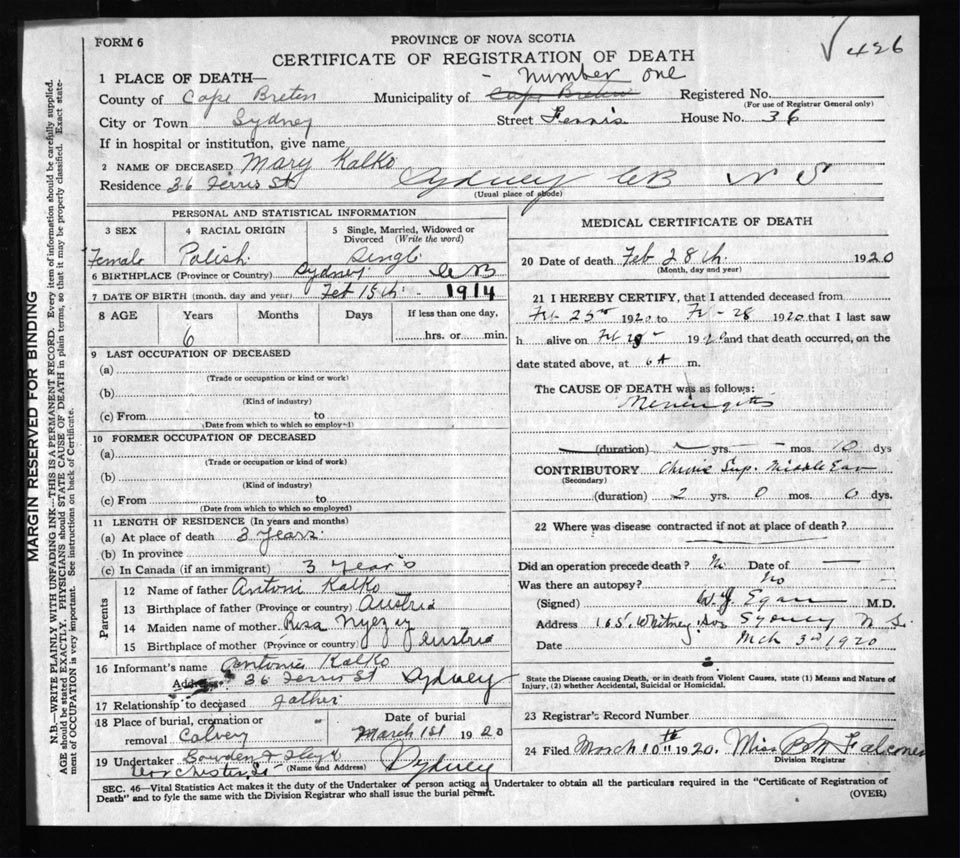 FORM 6
PROVINCE OF NOVA SCOTIA
CERTIFICATE OF REGISTRATION OF DEATH
√ 426
1 PLACE OF DEATH—
- Number one
County of Cape Breton Municipality of Cape Breton Registered No.
(For use of Registrar General only)
City or Town Sydney Street Ferris House No. 36
If in hospital or institution, give name
2 NAME OF DECEASED Mary Kalko
Residence 36 Ferris St Sydney CB N S
(Usual place of abode)
PERSONAL AND STATISTICAL INFORMATION
3 SEX 4 RACIAL ORIGIN 5 Single, Married, Widowed or Divorced (Write the word)
Female Polish Single
6 BIRTHPLACE (Province or Country) Sydney CB
7 DATE OF BIRTH (month, day and year) Feb 15th - 1914
8 AGE Years Months Days If less than one day,
6 hrs. or min.
9 LAST OCCUPATION OF DECEASED
(a)
(Trade or occupation or kind or work)
(b)
(Kind of industry)
(c) From to
(Date from which to which so employed)
10 FORMER OCCUPATION OF DECEASED
(a)
(Trade or occupation or kind of work)
(b)
(Kind of industry)
(c) From to
(Date from which to which so employed)
11 LENGTH OF RESIDENCE (In years and months)
(a) At place of death 3 Years.
(b) In province
(c) In Canada (if an immigrant) 3 Year's
Parents
12 Name of father Antoni Kalko
13 Birthplace of father (Province or country) Austria
14 Maiden name of mother Rosa
15 Birthplace of mother (Province or country) Austria
16 Informant's name Antonie Kalko
Address 36 Ferris St Sydney
17 Relationship to deceased father
18 Place of burial, cremation or removal Calvery
Date of burial March 1st 1920
19 Undertaker Sowden &
Dorchester St (Name and Address) Sydney
MEDICAL CERTIFICATE OF DEATH
20 Date of death Feb 28th. 1920
(Month, day and year)
21 I HEREBY CERTIFY, that I attended deceased from
Feb 25th 1920 to Feb - 28 1920 that I last saw
h alive on Feb 28th 1920 and that death occurred, on the
date stated above, at 6 A m.
The CAUSE OF DEATH was as follows:
Meningitis
(duration) yrs. mos. 10 dys
CONTRIBUTORY Chronic Sup. Middle Ear
(Secondary)
(duration) 2 yrs. 0 mos. 0 dys.
22 Where was disease contracted if not at place of death?
Did an operation precede death? No Date of
Was there an autopsy? No
(Signed) W.J. Egan M.D.
Address 165 Whitney Ave Sydney N S.
Date Mch 3rd 1920
State the Disease causing Death, or in death from Violent Causes, state (1) Means and Nature of Injury, (2) whether Accidental, Suicidal or Homicidal.
23 Registrar's Record Number
24 Filed March 10th 1920. Miss B M Falconer
Division Registrar
SEC. 46—Vital Statistics Act makes it the duty of the Undertaker or person acting as Undertaker to obtain all the particulars required in the "Certificate of Registration of
Death" and to fyle the same with the Division Registrar who shall issue the burial permit. (OVER)
MARGIN RESERVED FOR BINDING
N.B.—WRITE PLAINLY WITH UNFADING INK—THIS IS A PERMANENT RECORD. Every item of information should be carefully supplied.
AGE should be stated EXACTLY. PHYSICIANS should STATE CAUSE OF DEATH in plain terms, so that it may be properly classified. Exact statement of OCCUPATION is very important. See instructions on back of Certificate.